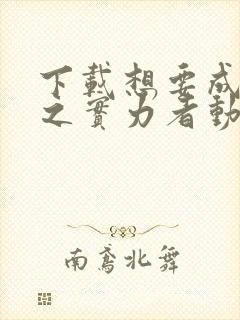 下載想要成
之實力者動
南鳶北舞